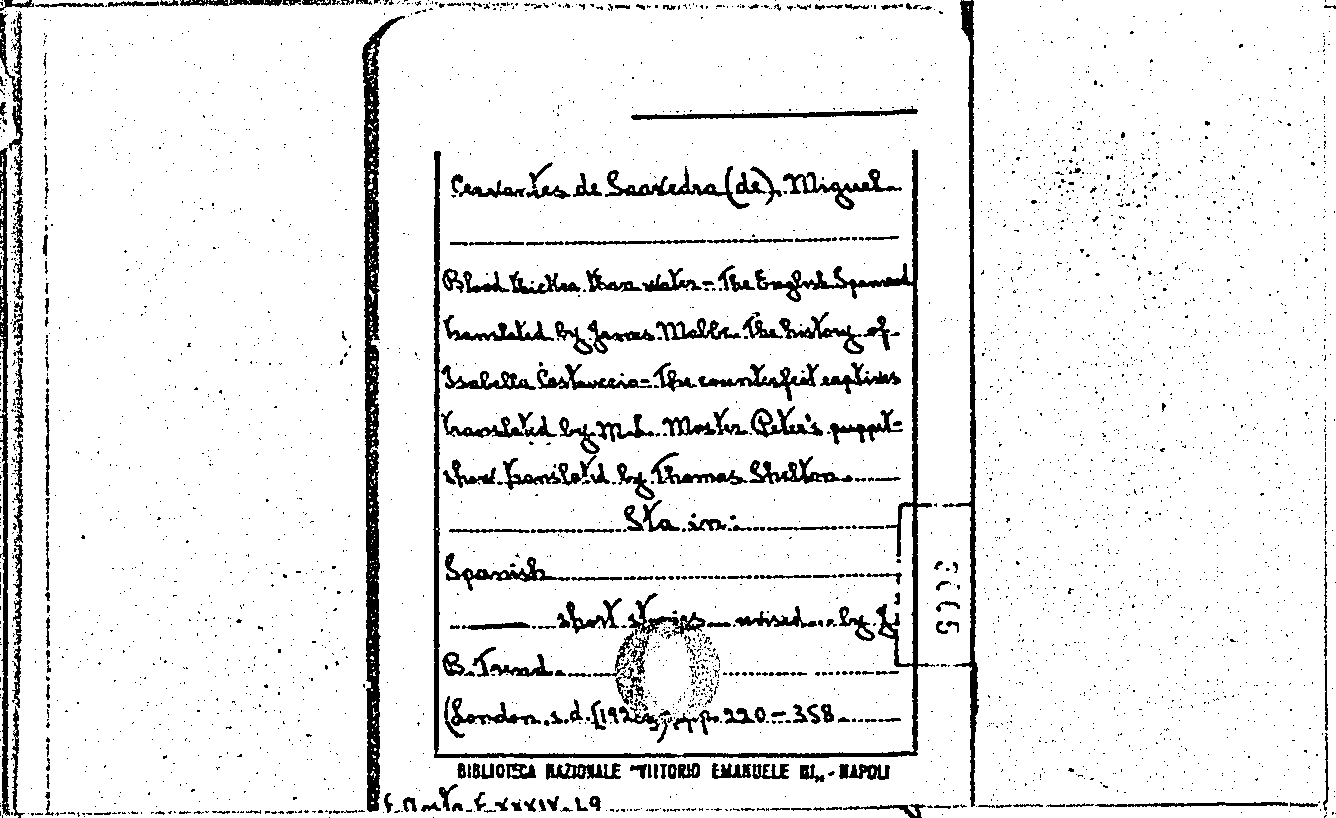 Cervantes de Saavedra (de), Miguel.
Blood thicker than water - The English Spaniard
translated by James Mabbe. The history of
Isabella Castruccio - The counterfeit captives
translated by M.L. Master Peter's puppet-
show translated by Thomas Shelton.
Sta in:
Spanish
short stories revised by J.
B. Trend.
(London, s.d. pp. 220 - 358
BIBLIOTECA NAZIONALE "VITTORIO EMANUELE III„ - NAPOLI